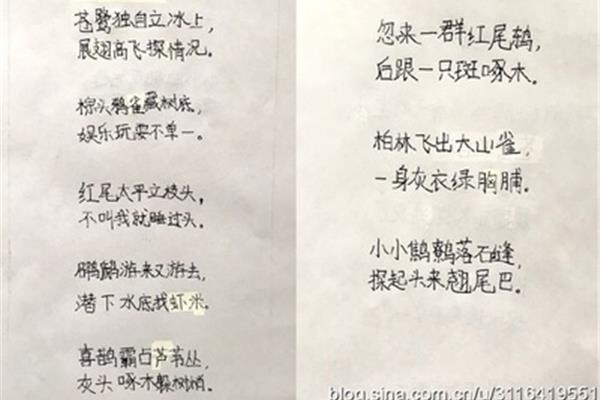 苍鹭独自立冰上，
展翅高飞探情况。
棕头鸦雀藏树底，
娱乐玩耍不单一。
红尾太平立枝头，
不叫我就睡过头。
䴙䴘游来又游去，
潜下水底找虾米。
喜鹊霸占芦苇丛，
灰头啄木躲树梢。
忽来一群红尾鸫，
后跟一只斑啄木。
柏林飞出大山雀，
一身灰衣绿胸脯。
小小鹪鹩落石缝，
探起头来翘尾巴。
blog.sina.com.cn/u/3116419551